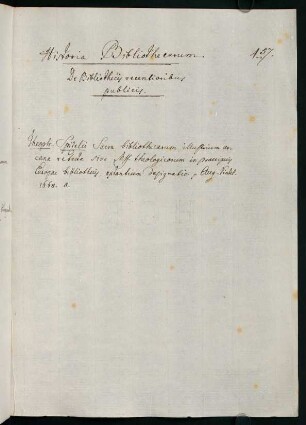 Historia Bibliothecarum.
457.
De Bibliothecis recentioribus
publicis.
Theoph. Spitzelii Sacra bibliothecarum illustrium ar-
cana retecta sive Mss theologicorum in praecipuis
Europae bibliothecis extantium designatio, Aug. Vindel.
1668. 8.